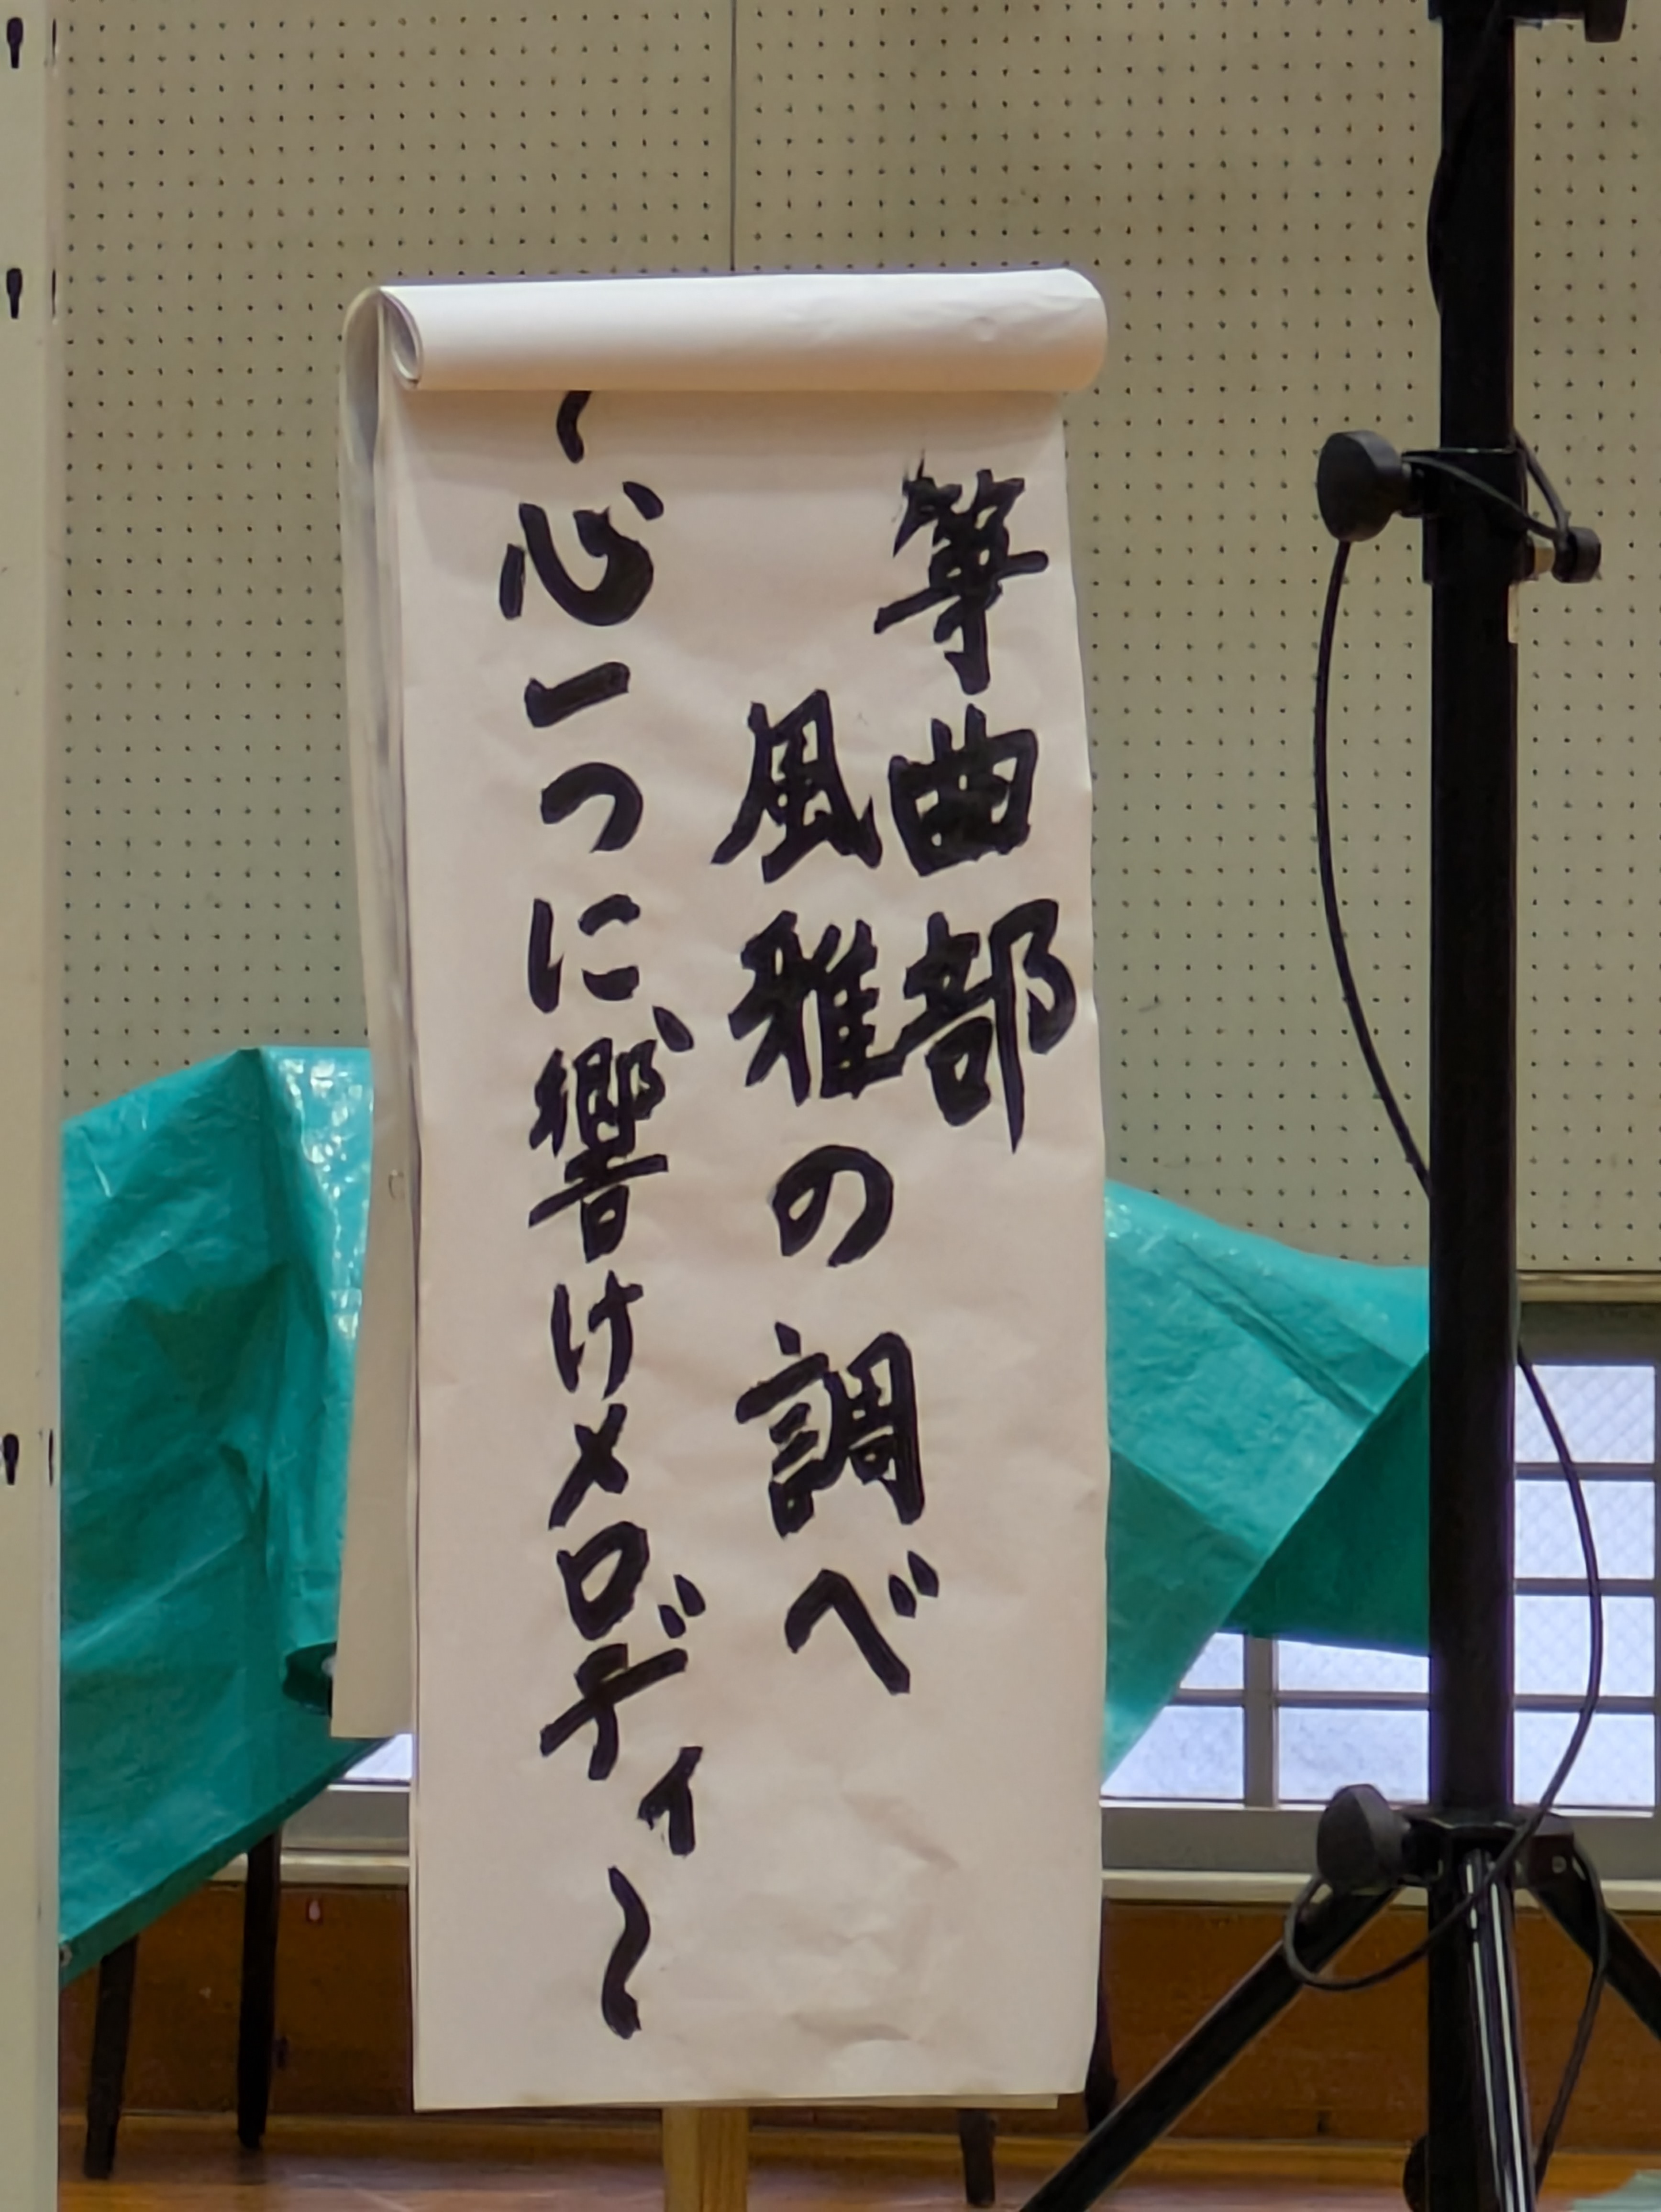 箏曲部
風雅の調べ
~心一つに、響けメロディ~